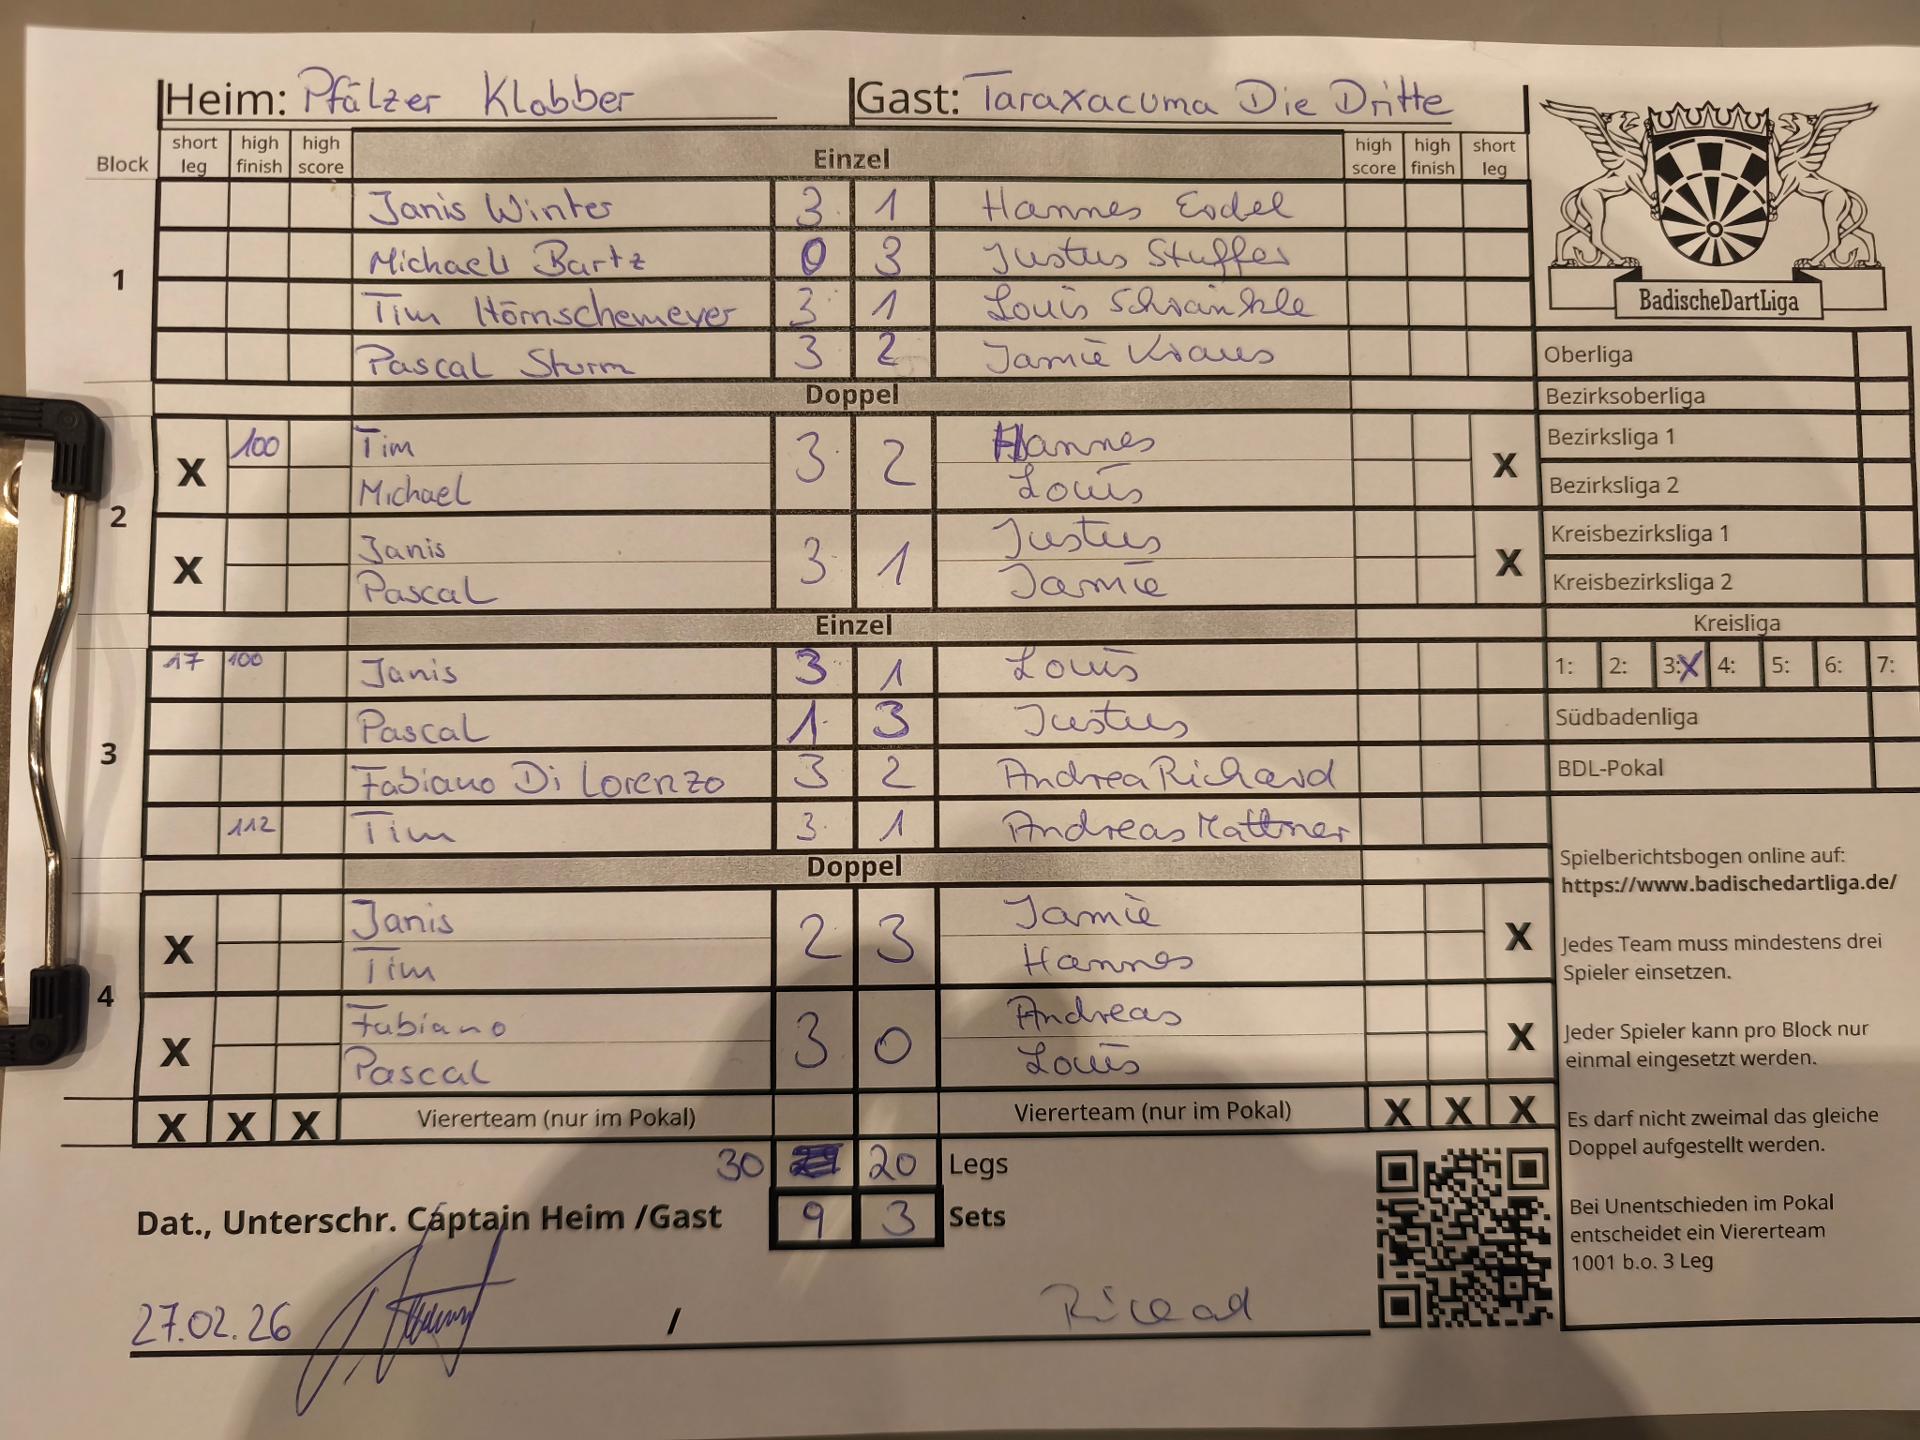 Heim: Pfälzer Klabber Gast: Taraxacuma Die Dritte
Block short leg high finish high score Einzel high score high finish short leg
1
Janis Winter 3 1 Hannes Erdel
Michael Bartz 0 3 Justus Stuffer
Tim Hörnschemeyer 3 1 Louis Schränkle
Pascal Sturm 3 2 Jamie Kraus
BadischeDartLiga
Oberliga
Doppel
Bezirksoberliga
2
X 100 Tim 3 2 Hannes X
Michael Louis
Bezirksliga 1
Bezirksliga 2
X Janis 3 1 Justus X
Pascal Jamie
Kreisbezirksliga 1
Kreisbezirksliga 2
Einzel
Kreisliga
1: 2: 3:X 4: 5: 6: 7:
3
17 100 Janis 3 1 Louis
Pascal 1 3 Justus
Fabiano Di Lorenzo 3 2 Andrea Richard
112 Tim 3 1 Andreas Mattner
Südbadenliga
BDL-Pokal
Doppel
4
X Janis 2 3 Jamie X
Tim Hannes
X Fabiano 3 0 Andreas X
Pascal Louis
X X X Viererteam (nur im Pokal) Viererteam (nur im Pokal) X X X
30 20 Legs
Dat., Unterschr. Captain Heim /Gast 9 3 Sets
27.02.26 / Richard
Spielberichtsbogen online auf:
https://www.badischedartliga.de/
Jedes Team muss mindestens drei
Spieler einsetzen.
Jeder Spieler kann pro Block nur
einmal eingesetzt werden.
Es darf nicht zweimal das gleiche
Doppel aufgestellt werden.
Bei Unentschieden im Pokal
entscheidet ein Viererteam
1001 b.o. 3 Leg